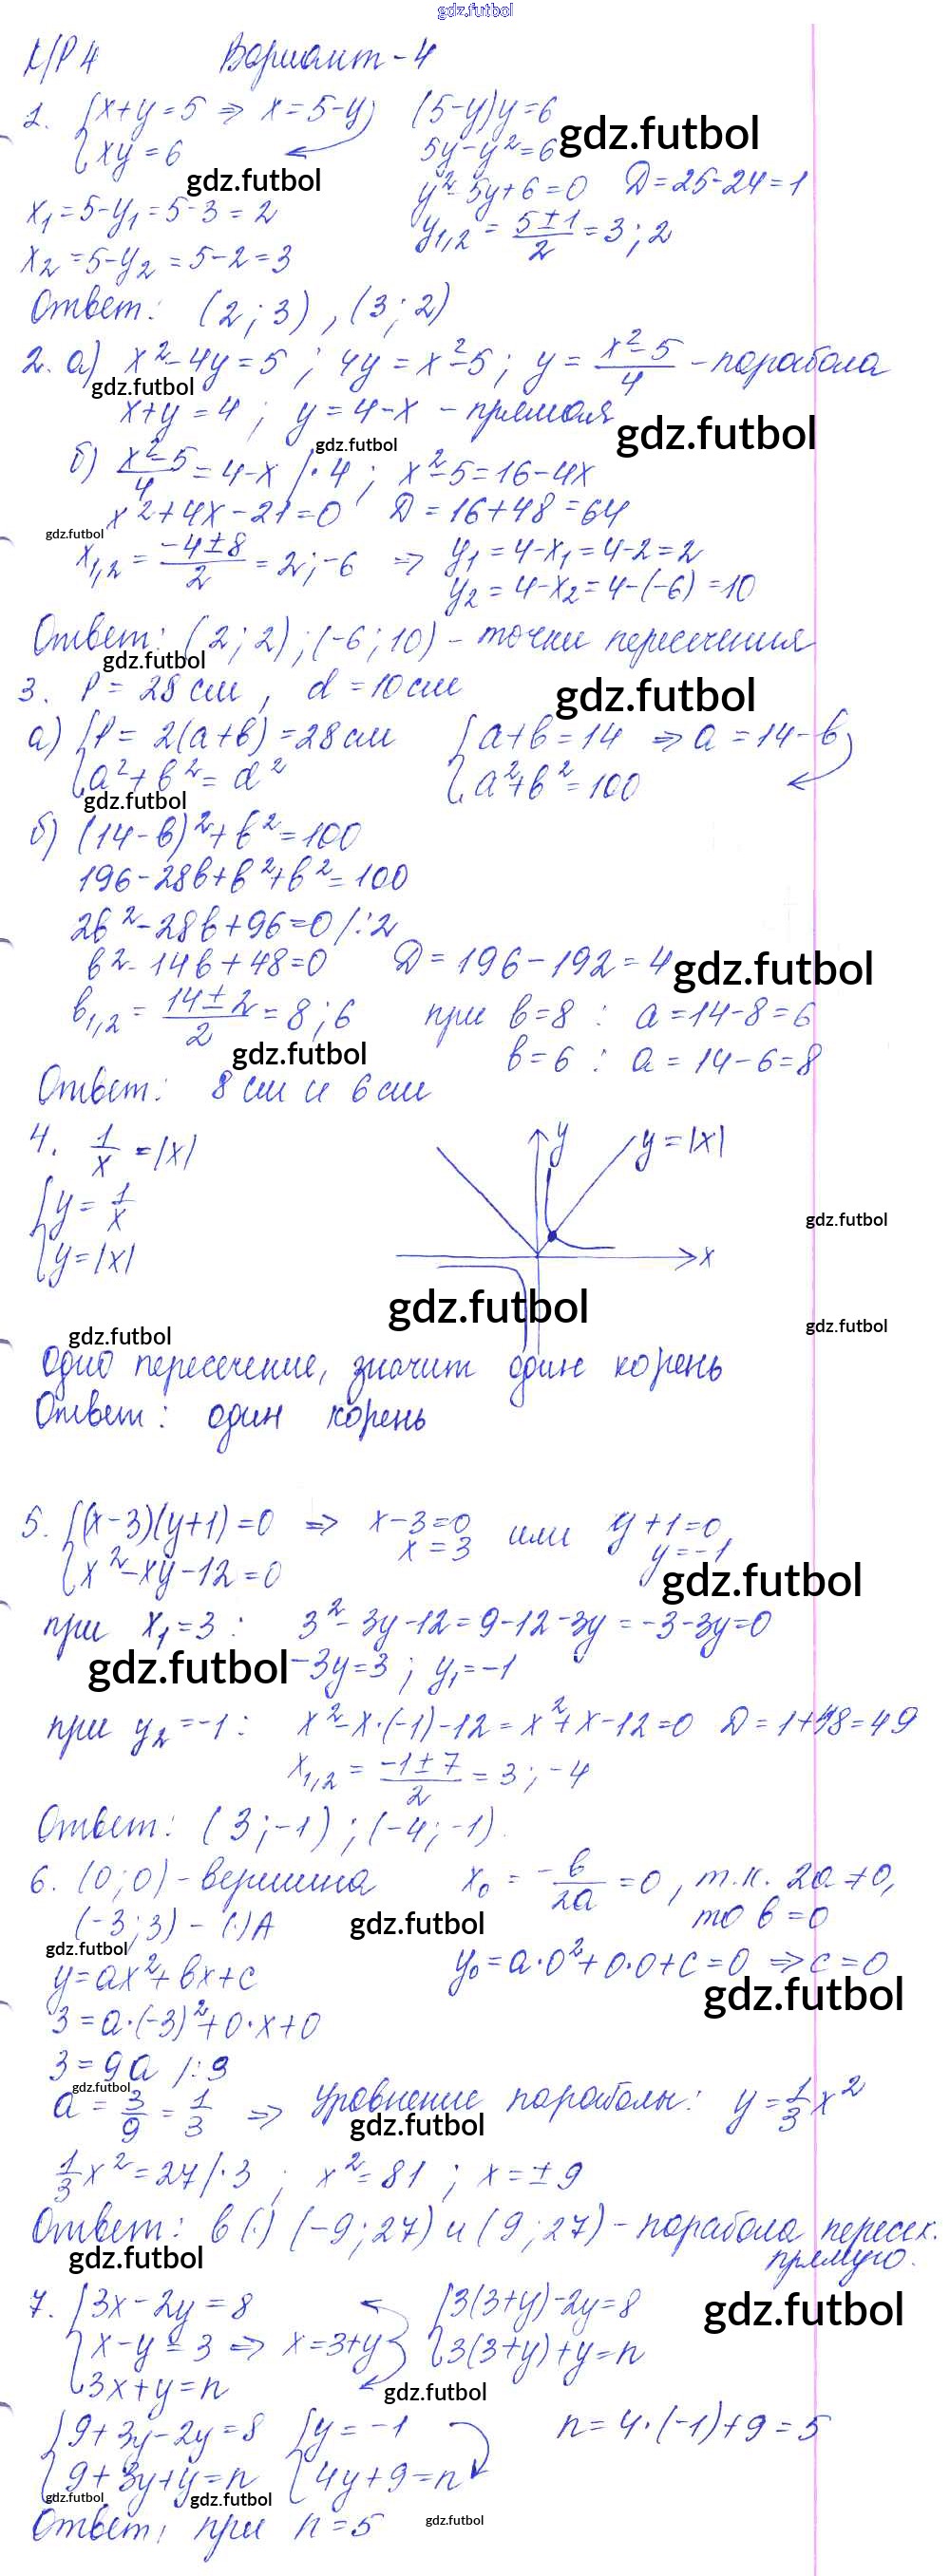 gdz.futbol
К/Р 4 Вариант-4
1. {x+y=5 ⇒ x=5-y (5-y)y=6
xy=6 5y-y²=6 gdz.futbol
gdz.futbol y²-5y+6=0 D=25-24=1
x₁=5-y₁=5-3=2 y₁,₂ = (5±1)/2 = 3; 2
x₂=5-y₂=5-2=3
Ответ: (2; 3), (3; 2)
2. а) x²-4y=5; 4y=x²-5; y = (x²-5)/4 - парабола
gdz.futbol
x+y=4; y=4-x - прямая gdz.futbol
gdz.futbol
б) (x²-5)/4 = 4-x |·4; x²-5=16-4x
x²+4x-21=0 D=16+48=64
gdz.futbol
x₁,₂ = (-4±8)/2 = 2; -6 ⇒ y₁=4-x₁=4-2=2
y₂=4-x₂=4-(-6)=10
Ответ: (2; 2); (-6; 10) - точки пересечения
gdz.futbol
3. P=28 см, d=10 см gdz.futbol
а) {P=2(a+b)=28 см {a+b=14 ⇒ a=14-b
a²+b²=d² a²+b²=100
gdz.futbol
б) (14-b)²+b²=100
196-28b+b²+b²=100
2b²-28b+96=0 |:2
b²-14b+48=0 D=196-192=4 gdz.futbol
b₁,₂ = (14±2)/2 = 8; 6 при b=8: a=14-8=6
gdz.futbol b=6: a=14-6=8
Ответ: 8 см и 6 см
4. 1/x = |x| y y=|x|
{y = 1/x
gdz.futbol
y=|x| x
gdz.futbol
gdz.futbol
gdz.futbol
Одно пересечение, значит один корень
Ответ: один корень
5. {(x-3)(y+1)=0 ⇒ x-3=0 или y+1=0
x²-xy-12=0 x=3 y=-1
gdz.futbol
при x₁=3: 3²-3y-12=9-12-3y=-3-3y=0
gdz.futbol -3y=3; y₁=-1
при y₂=-1: x²-x·(-1)-12=x²+x-12=0 D=1+48=49
x₁,₂ = (-1±7)/2 = 3; -4
Ответ: (3; -1); (-4; -1).
6. (0; 0) - вершина x₀ = -b/2a = 0, т.к. 2a≠0,
(-3; 3) - (·)A gdz.futbol то b=0
gdz.futbol
y=ax²+bx+c y₀=a·0²+0·0+c=0 ⇒ c=0
gdz.futbol
3=a·(-3)²+0·x+0
3=9a |:9
gdz.futbol
a = 3/9 = 1/3 ⇒ Уравнение параболы: y = 1/3 x²
gdz.futbol
1/3 x²=27 |·3; x²=81; x=±9
Ответ: в (·) (-9; 27) и (9; 27) - парабола пересек.
gdz.futbol прямую.
7. {3x-2y=8 {3(3+y)-2y=8 gdz.futbol
x-y=3 ⇒ x=3+y 3(3+y)+y=n
3x+y=n gdz.futbol
{9+3y-2y=8 {y=-1 n=4·(-1)+9=5
9+3y+y=n 4y+9=n
gdz.futbol gdz.futbol
Ответ: при n=5 gdz.futbol